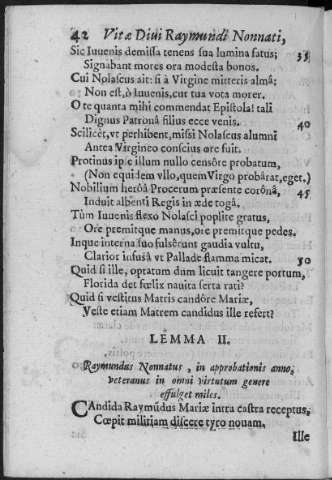 42 Vitæ Diui Raymundi Nonnati,
Sic Iuuenis demissa tenens sua lumina fatus; 35
Signabant mores ora modesta bonos.
Cui Nolascus ait: si à Virgine mitteris almâ;
Non est, ò Iuuenis, cur tua vota morer.
O te quanta mihi commendat Epistola! tali
Dignus Patronâ filius ecce venis. 40
Scilicèt, vt perhibent, missi Nolascus alumni
Antea Virgineo conscius ore fuit.
Protinus ipse illum nullo censôre probatum,
(Non equidem vllo, quem Virgo probârat, eget.)
Nobilium heroâ Procerum præsente corônâ, 45
Induit albenti Regis in æde togâ.
Tùm Iuuenis flexo Nolasci poplite gratus,
Ore premitque manus, ore premitque pedes.
Inque interna suo fulsêrunt gaudia vultu,
Clarior infusâ vt Pallade flamma micat. 50
Quid si ille, optatum dum licuit tangere portum,
Florida det fœlix nauita serta rati?
Quid si vestitus Matris candôre Mariæ,
Veste etiam Matrem candidus ille refert?
LEMMA II.
Raymundus Nonnatus, in approbationis anno,
veteranus in omni virtutum genere
effulget miles.
CAndida Raymūdus Mariæ intra castra receptus,
Cœpit militiam discere tyro nouam.
Ille